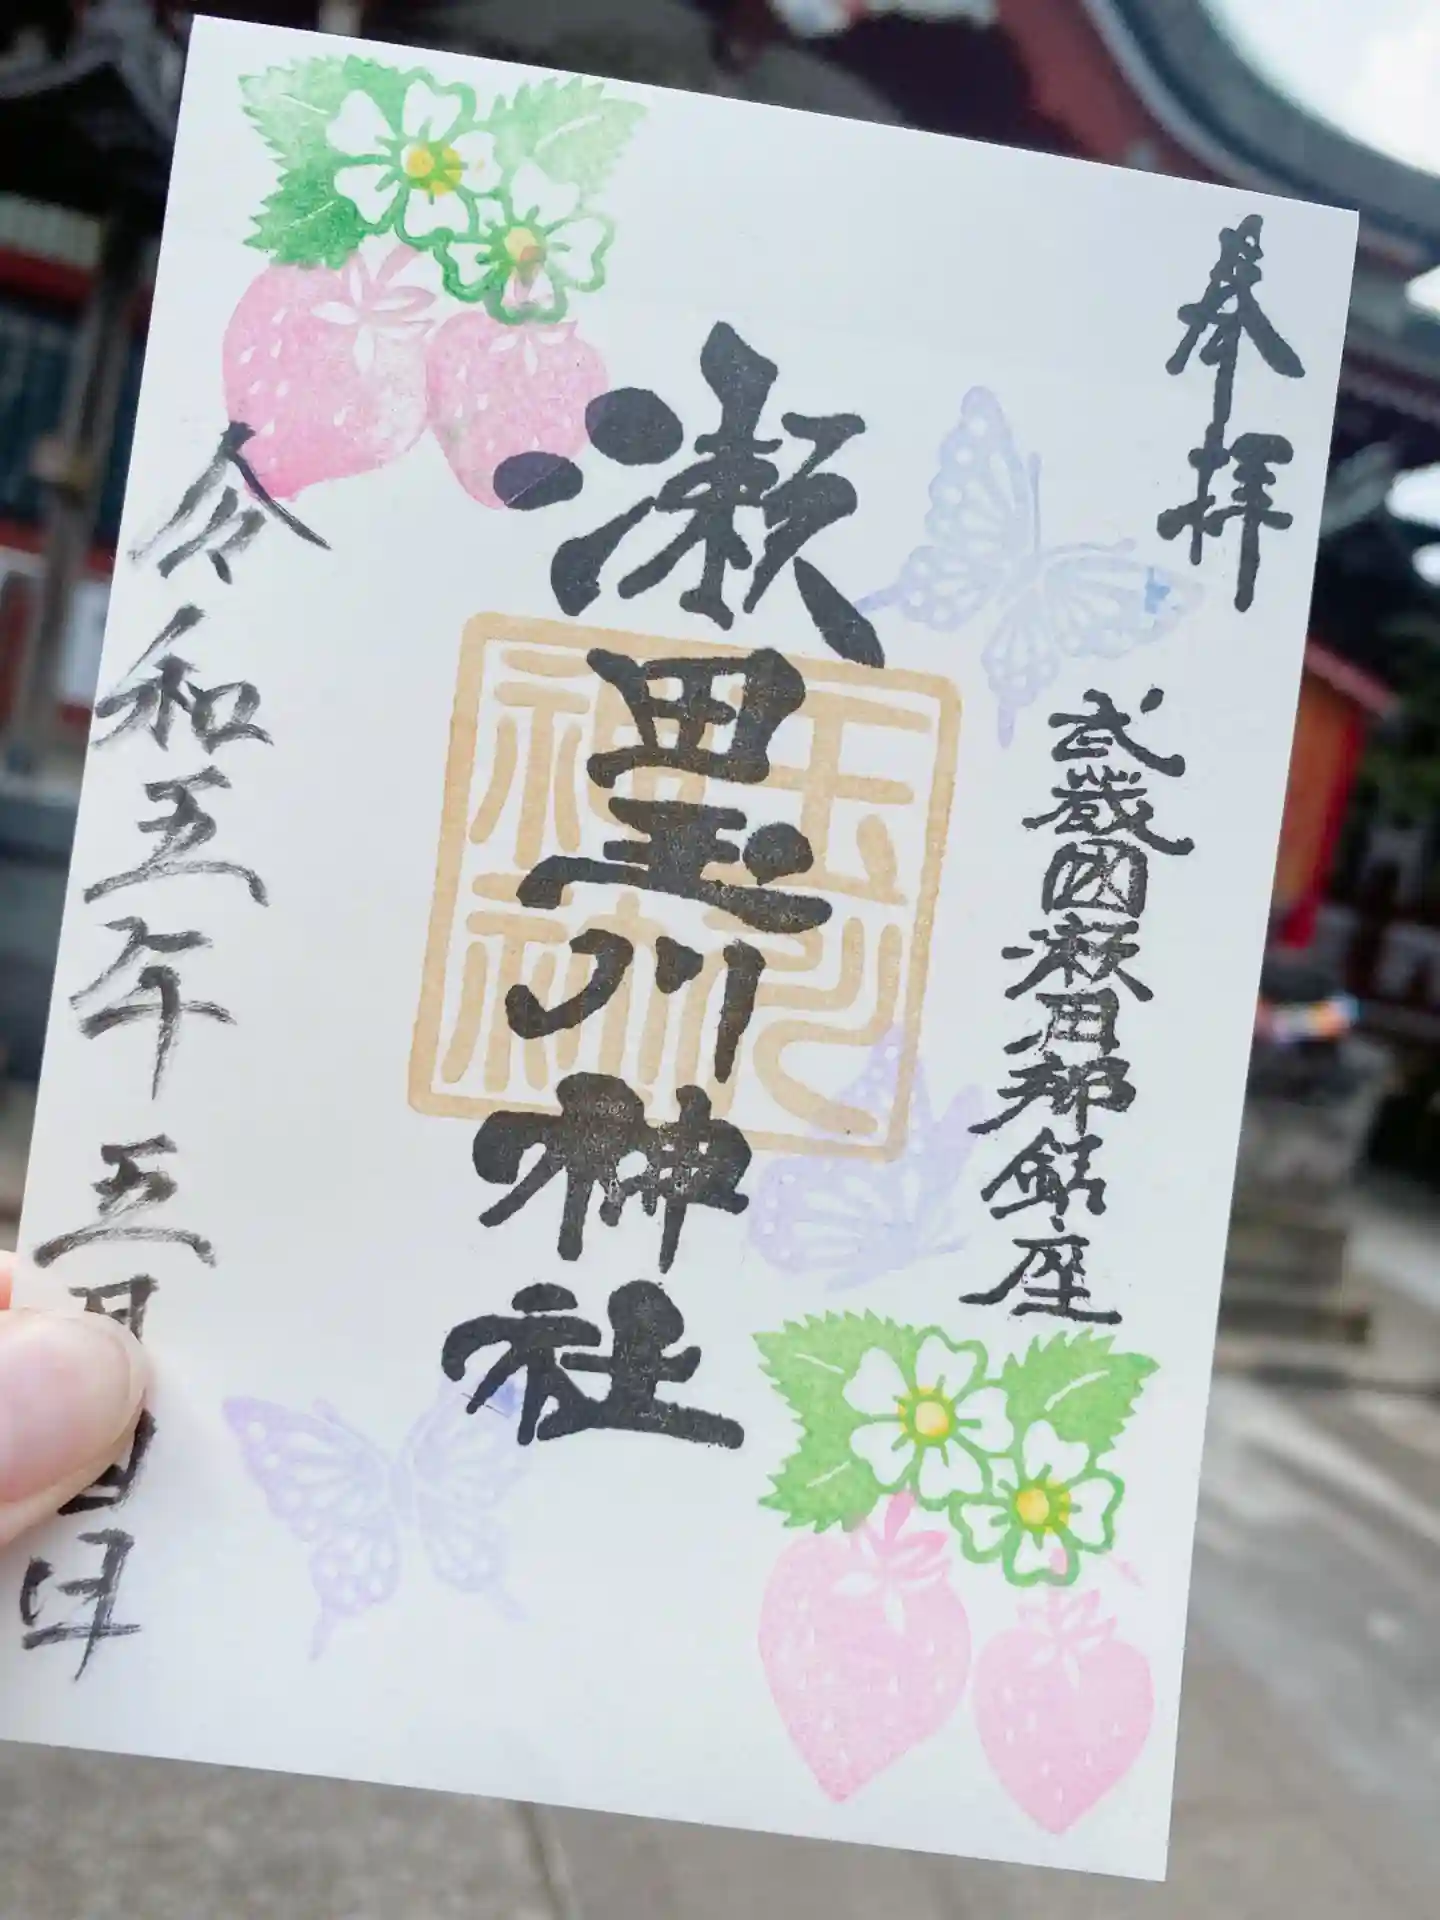 奉拝
武蔵國瀬田郷鎮座
瀬田玉川神社
玉川
神社
令和五年 五月 日